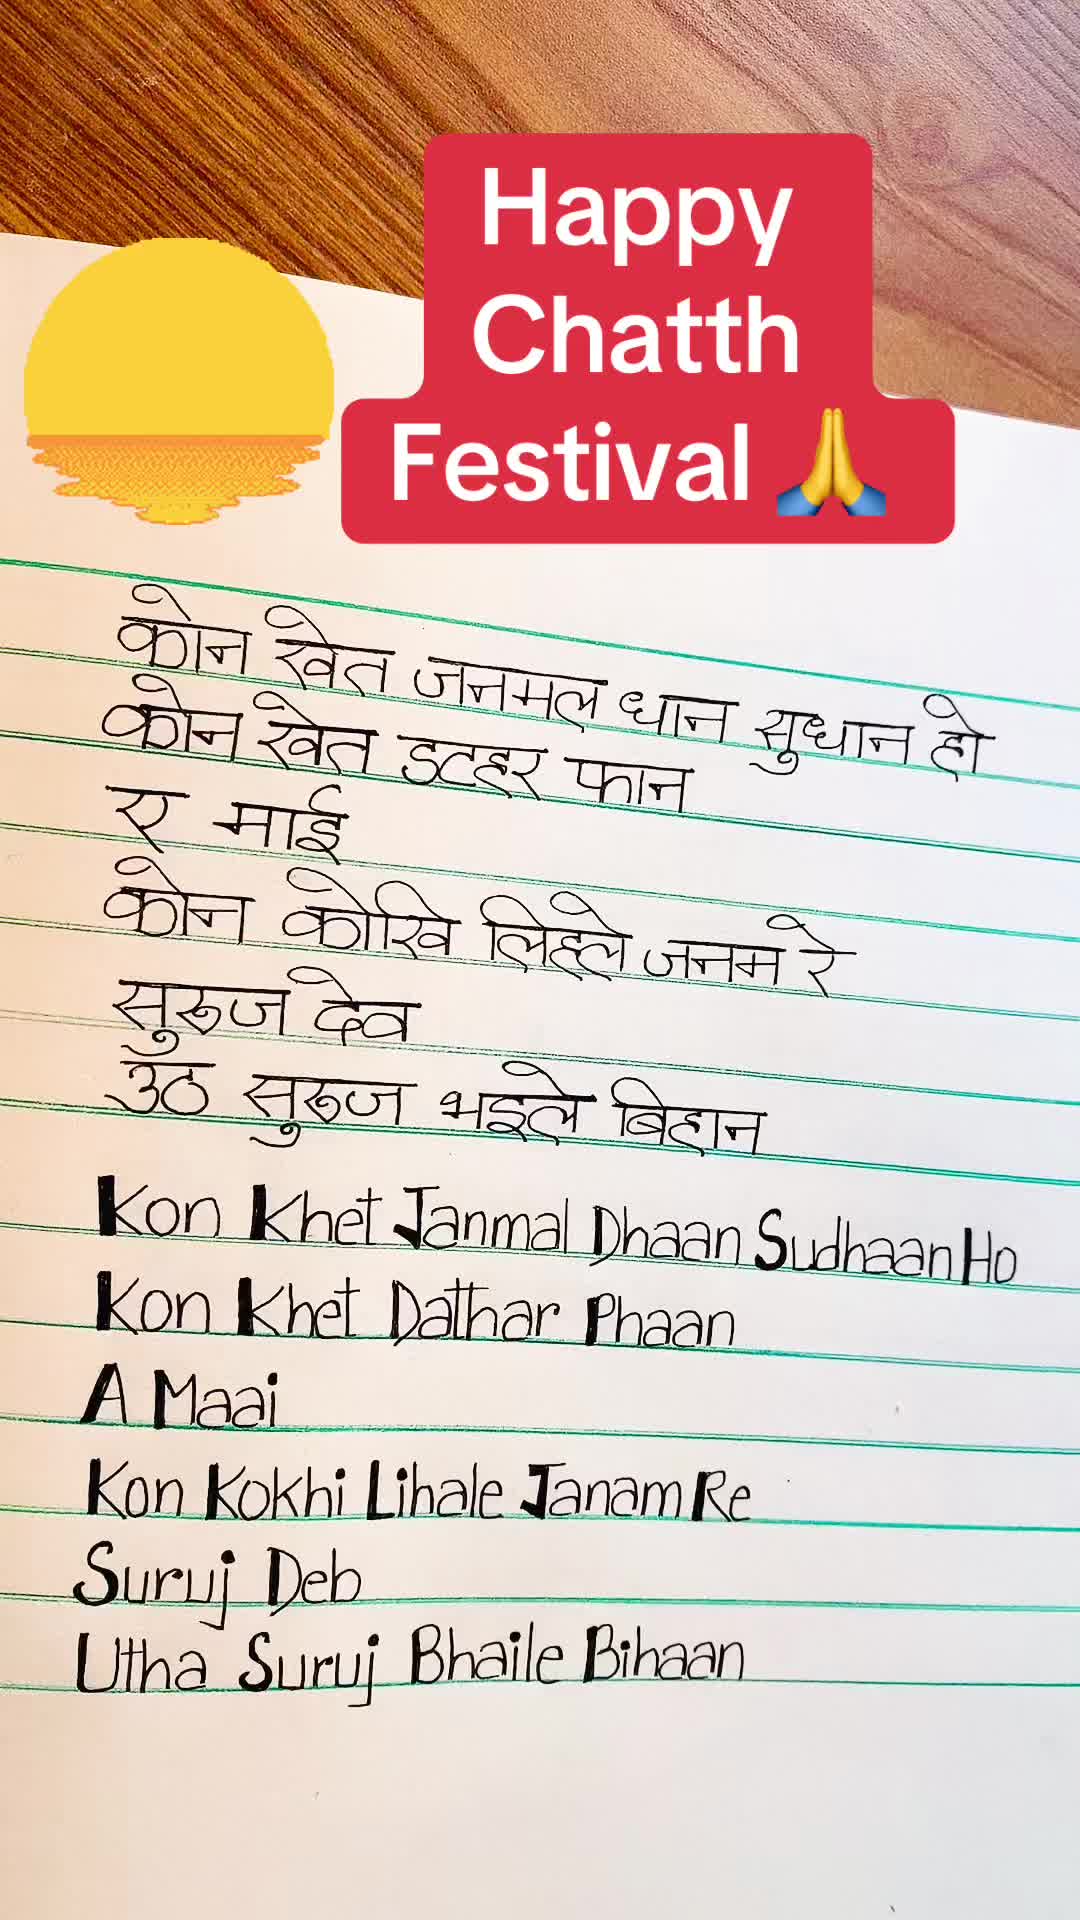 Happy
Chatth
Festival 🙏
कोन खेत जनमल धान सुधान हो
कोन खेत डटहर फान
ए माई
कोन कोखि लिहले जनम रे
सुरूज देव
उठ सुरूज भइले बिहान
Kon Khet Janmal Dhaan Sudhaan Ho
Kon Khet Dathar Phaan
A Maai
Kon Kokhi Lihale Janam Re
Suruj Deb
Utha Suruj Bhaile Bihaan